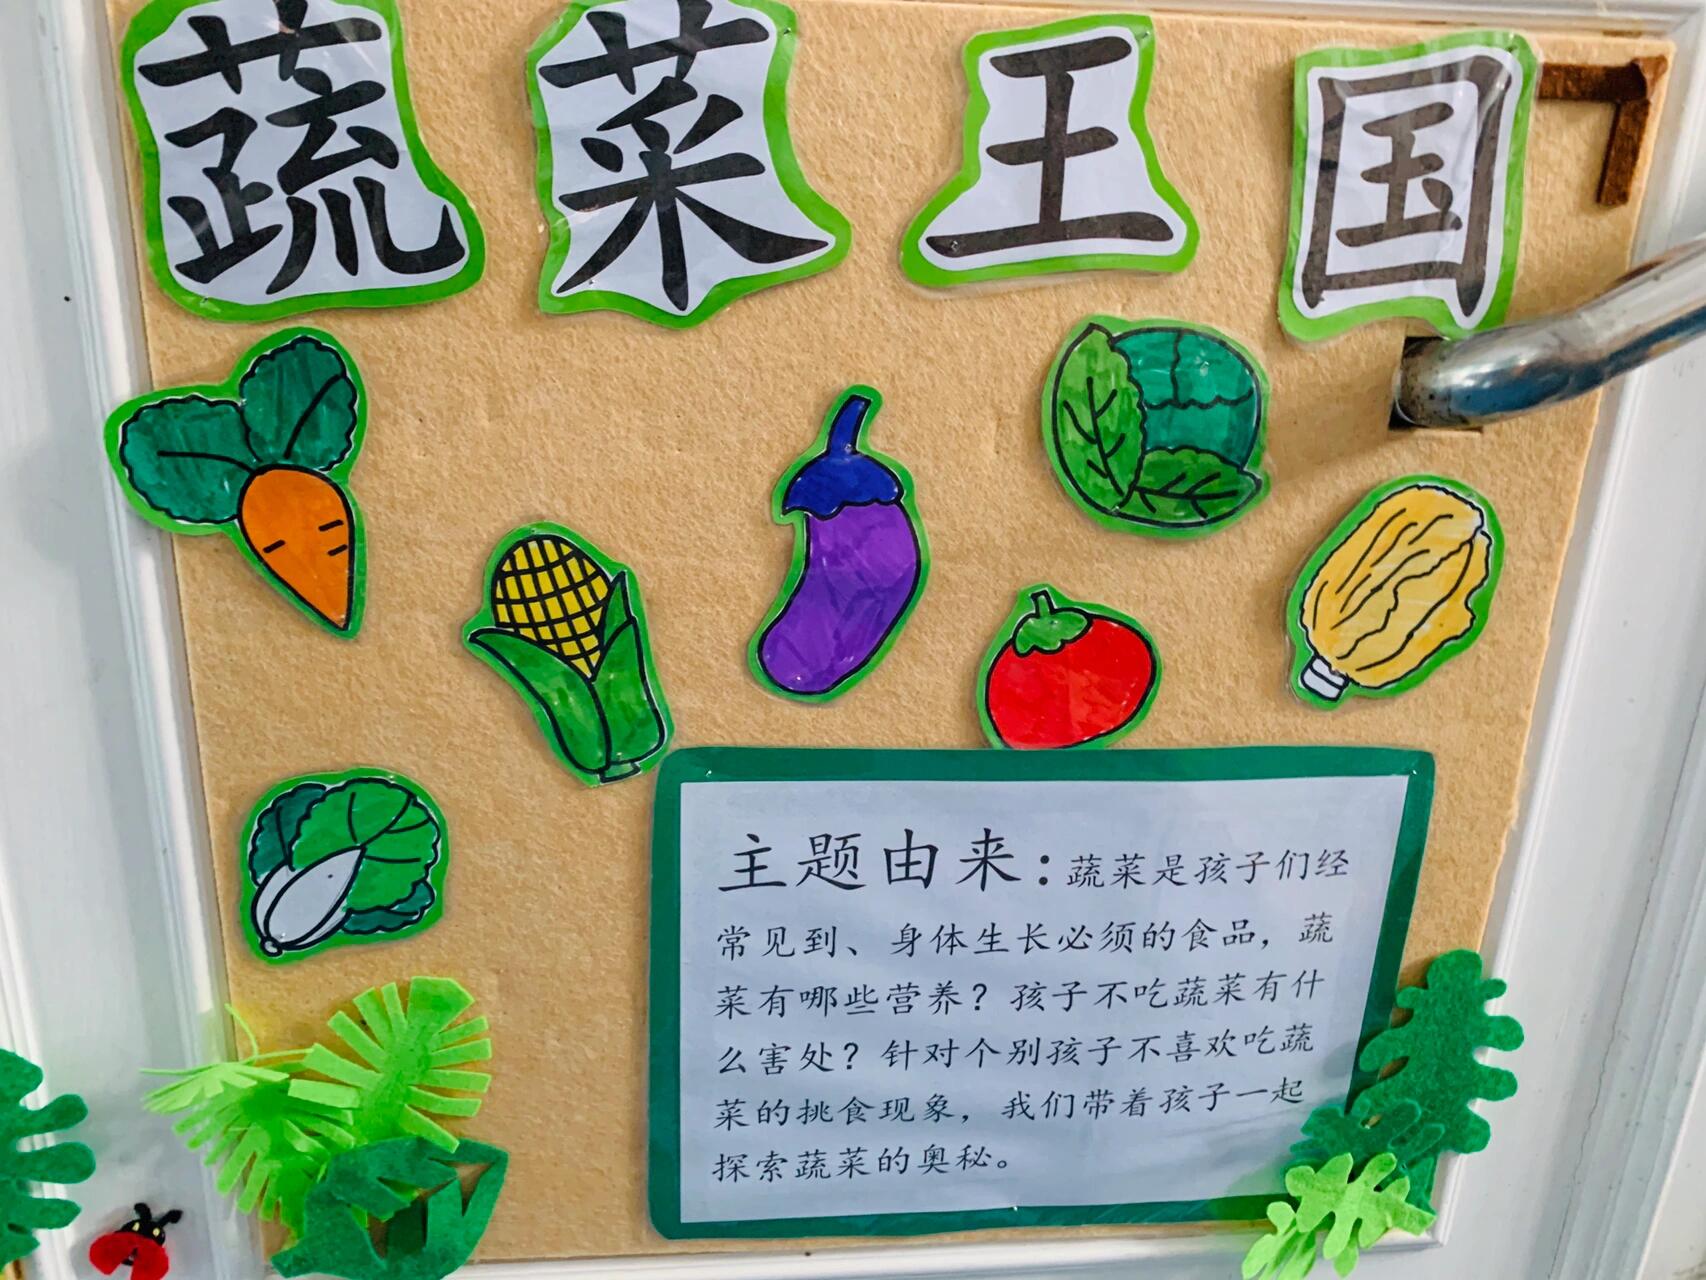 蔬菜王国
主题由来：蔬菜是孩子们经
常见到、身体生长必须的食品，蔬
菜有哪些营养？孩子不吃蔬菜有什
么害处？针对个别孩子不喜欢吃蔬
菜的挑食现象，我们带着孩子一起
探索蔬菜的奥秘。